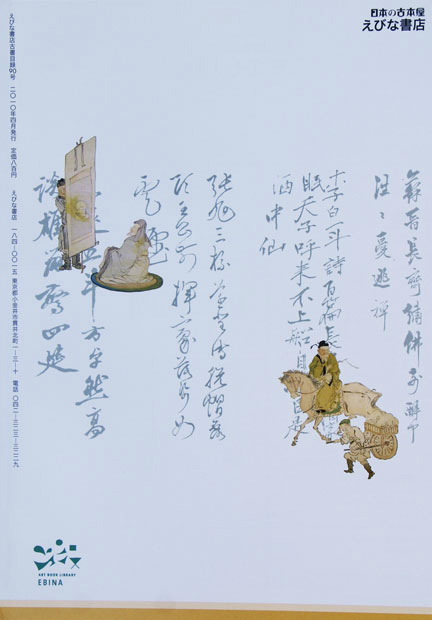 日本の古本屋
えびな書店
蘇晉長齋繍佛前醉中
往々愛逃禅
李白一斗詩百篇長
眠天子呼来不上船自臣是
酒中仙
張旭三杯草聖傳脱帽露
頂王公前揮豪落帋如
雲煙
遂五斗方卓然高
談雄辯驚四筵
えびな書店古書目録90号 二〇一〇年四月発行 定価八百円 えびな書店 一八四-〇〇一五 東京都小金井市貫井北町一-三-一〇 電話 〇四二
ART BOOK LIBRARY
EBINA